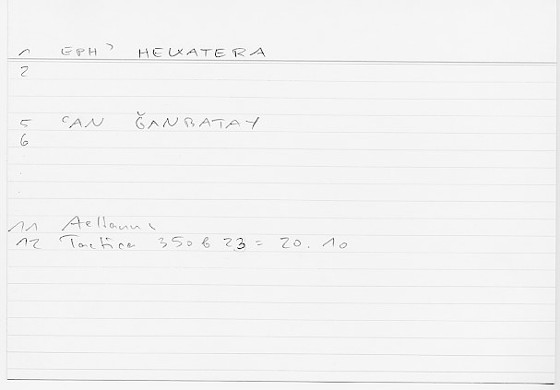 1 EPH' HEKATERA
2
5 CAN ČANBATAY
6
11 Aelianus
12 Tactica 350 b 23 = 20.10